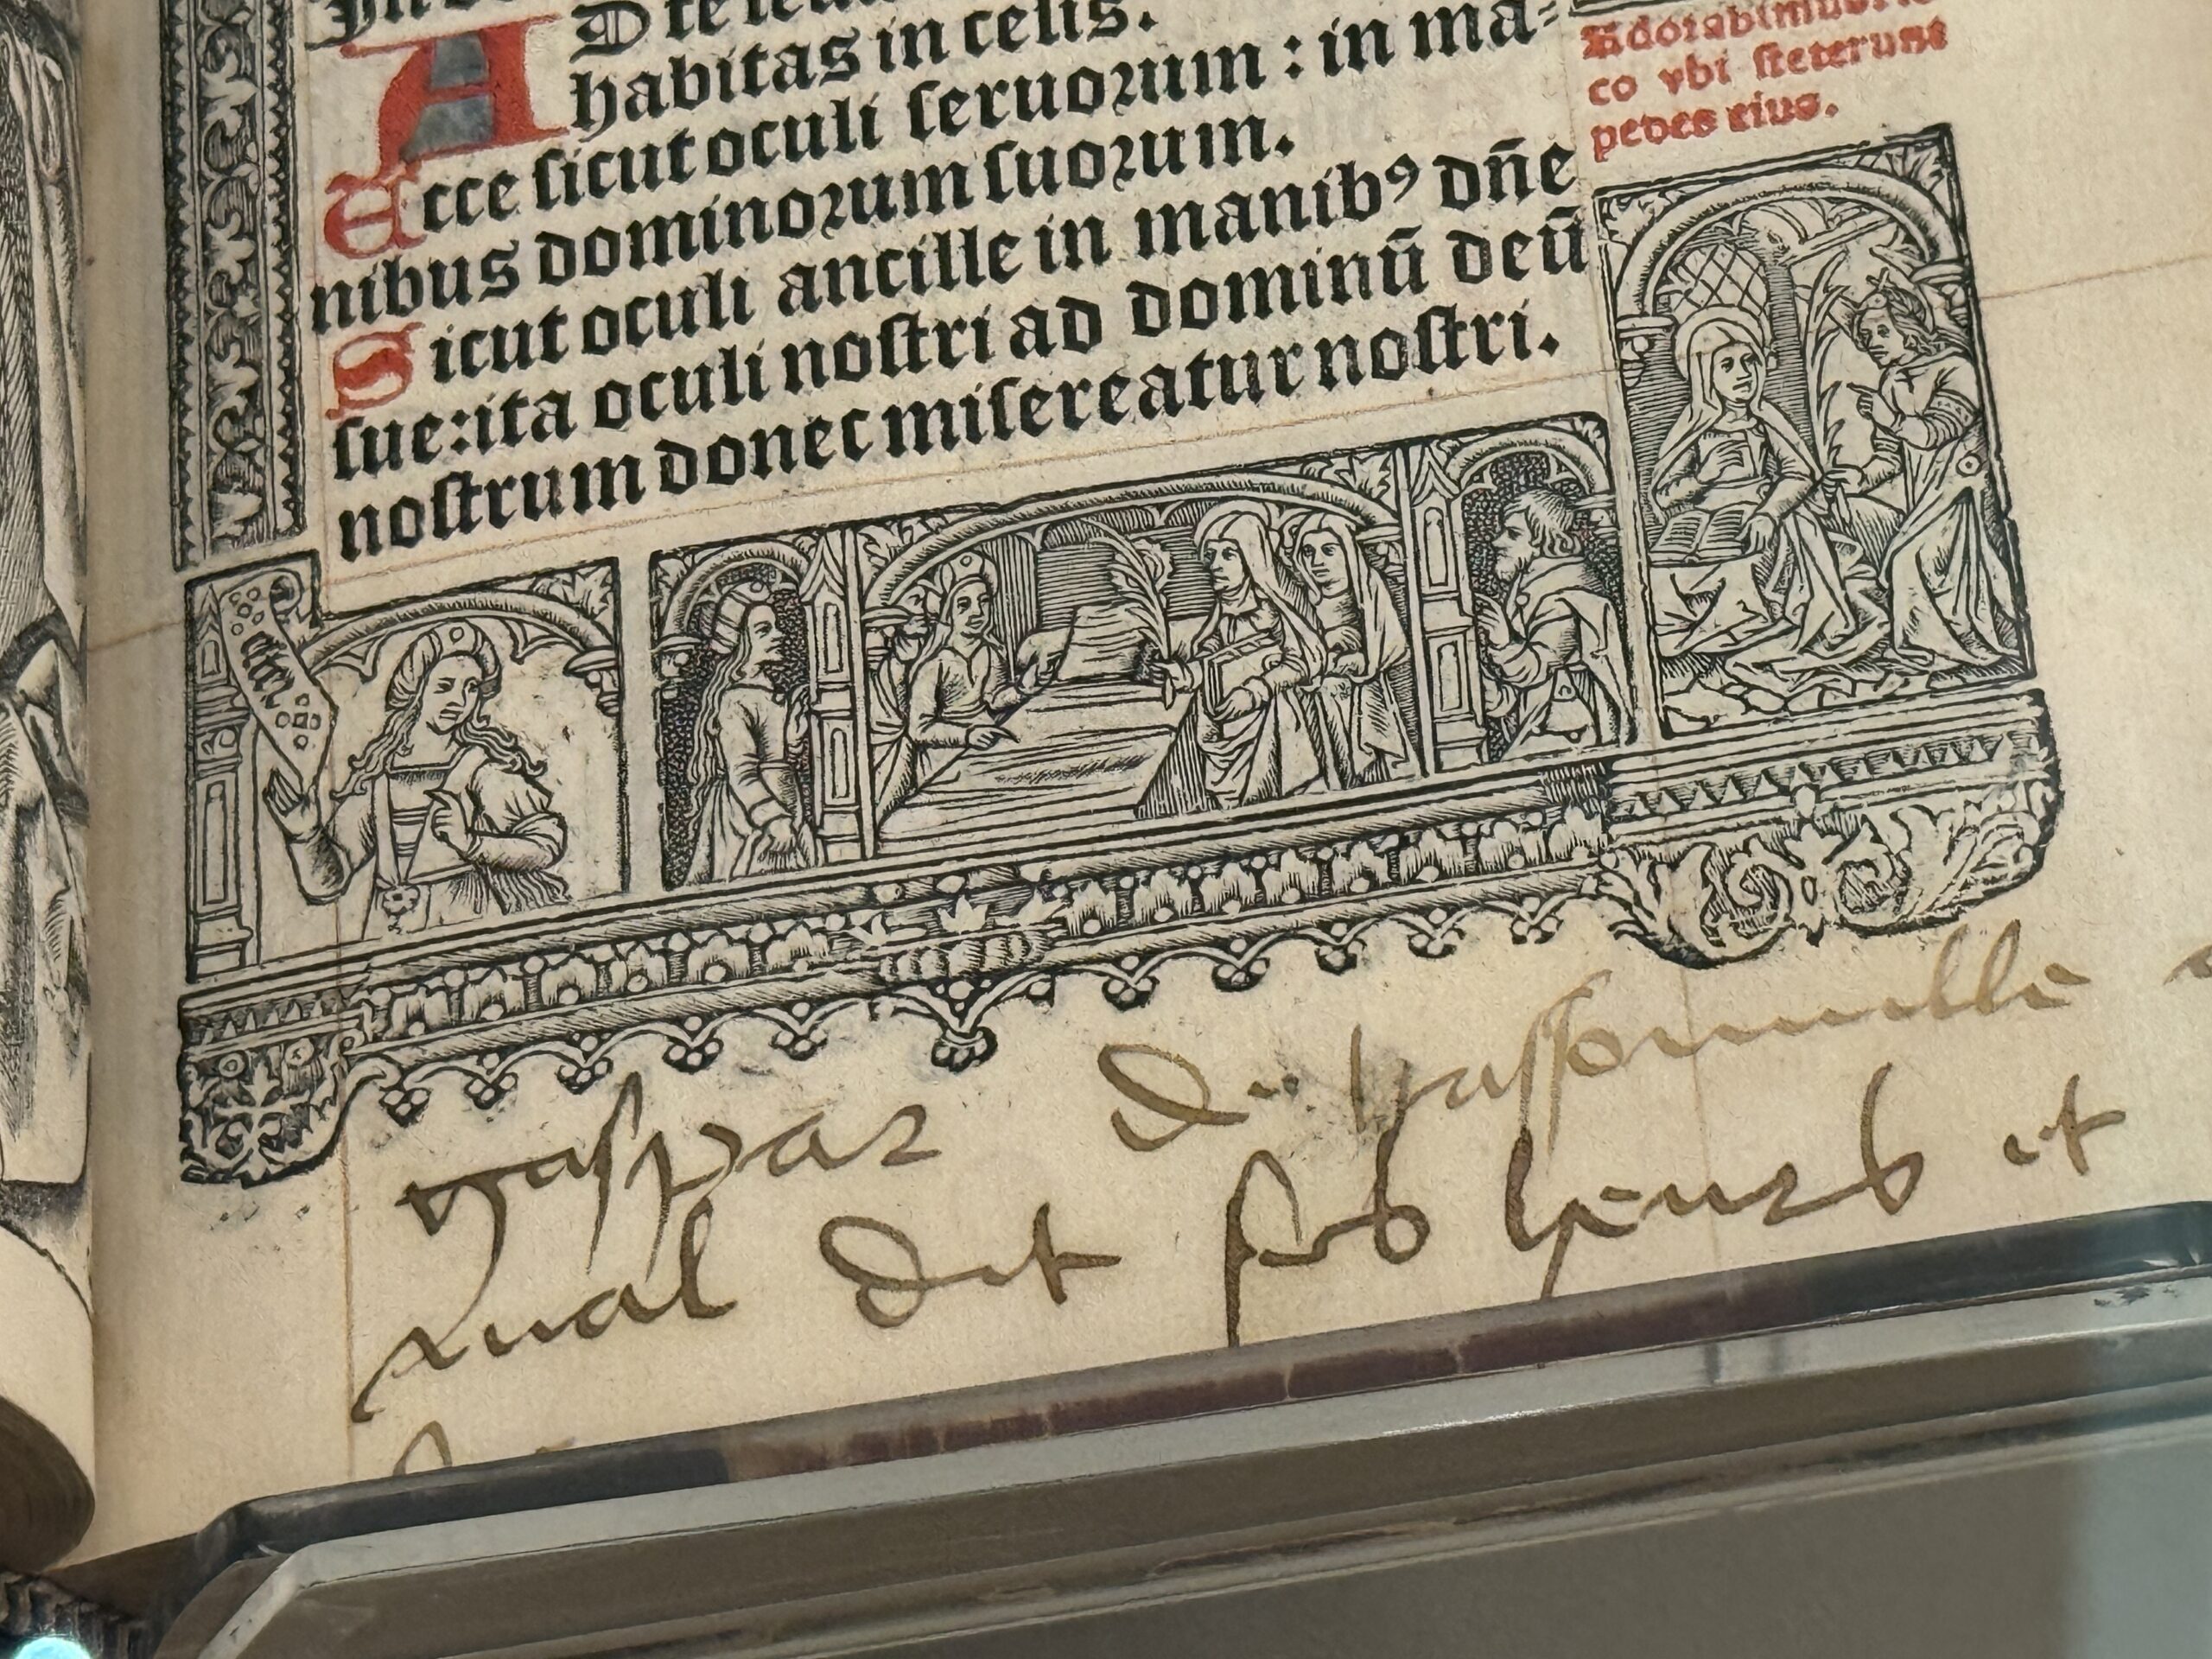 habitas in celis.
Ecce sicut oculi seruorum : in ma-
nibus dominorum suorum.
Sicut oculi ancille in manibꝰ dñe
sue:ita oculi nostri ad dominū deū
nostrum donec misereatur nostri.
co vbi steterunt
pedes eius.
gaspar
dit ses heures et